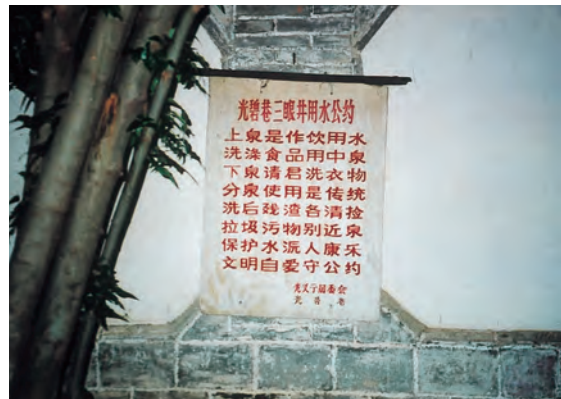 光碧巷三眼井用水公约
上泉是作饮用水
洗涤食品用中泉
下泉请君洗衣物
分泉使用是传统
洗后残渣各清捡
垃圾污物别近泉
保护水沅人康乐
文明自爱守公约
光义居委会
光碧巷